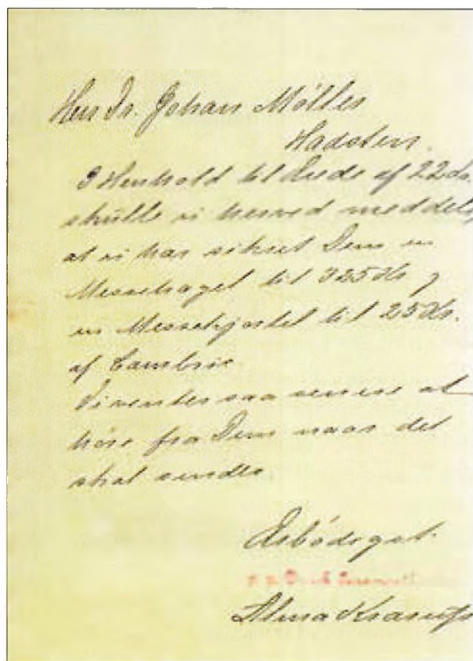 Herr Fr. Johan Møller
Hadsten.
I Henhold til Ærede af 22 ds.
skulle vi herved meddele,
at vi har sikret Dem en
Messehagel til 325 Kr og
en Messekjortel til 25 Kr.
af Cambric.
Vi venter saa senere at
høre fra Dem naar det
skal sendes.
Ærbødigst.
p. p.
Alma